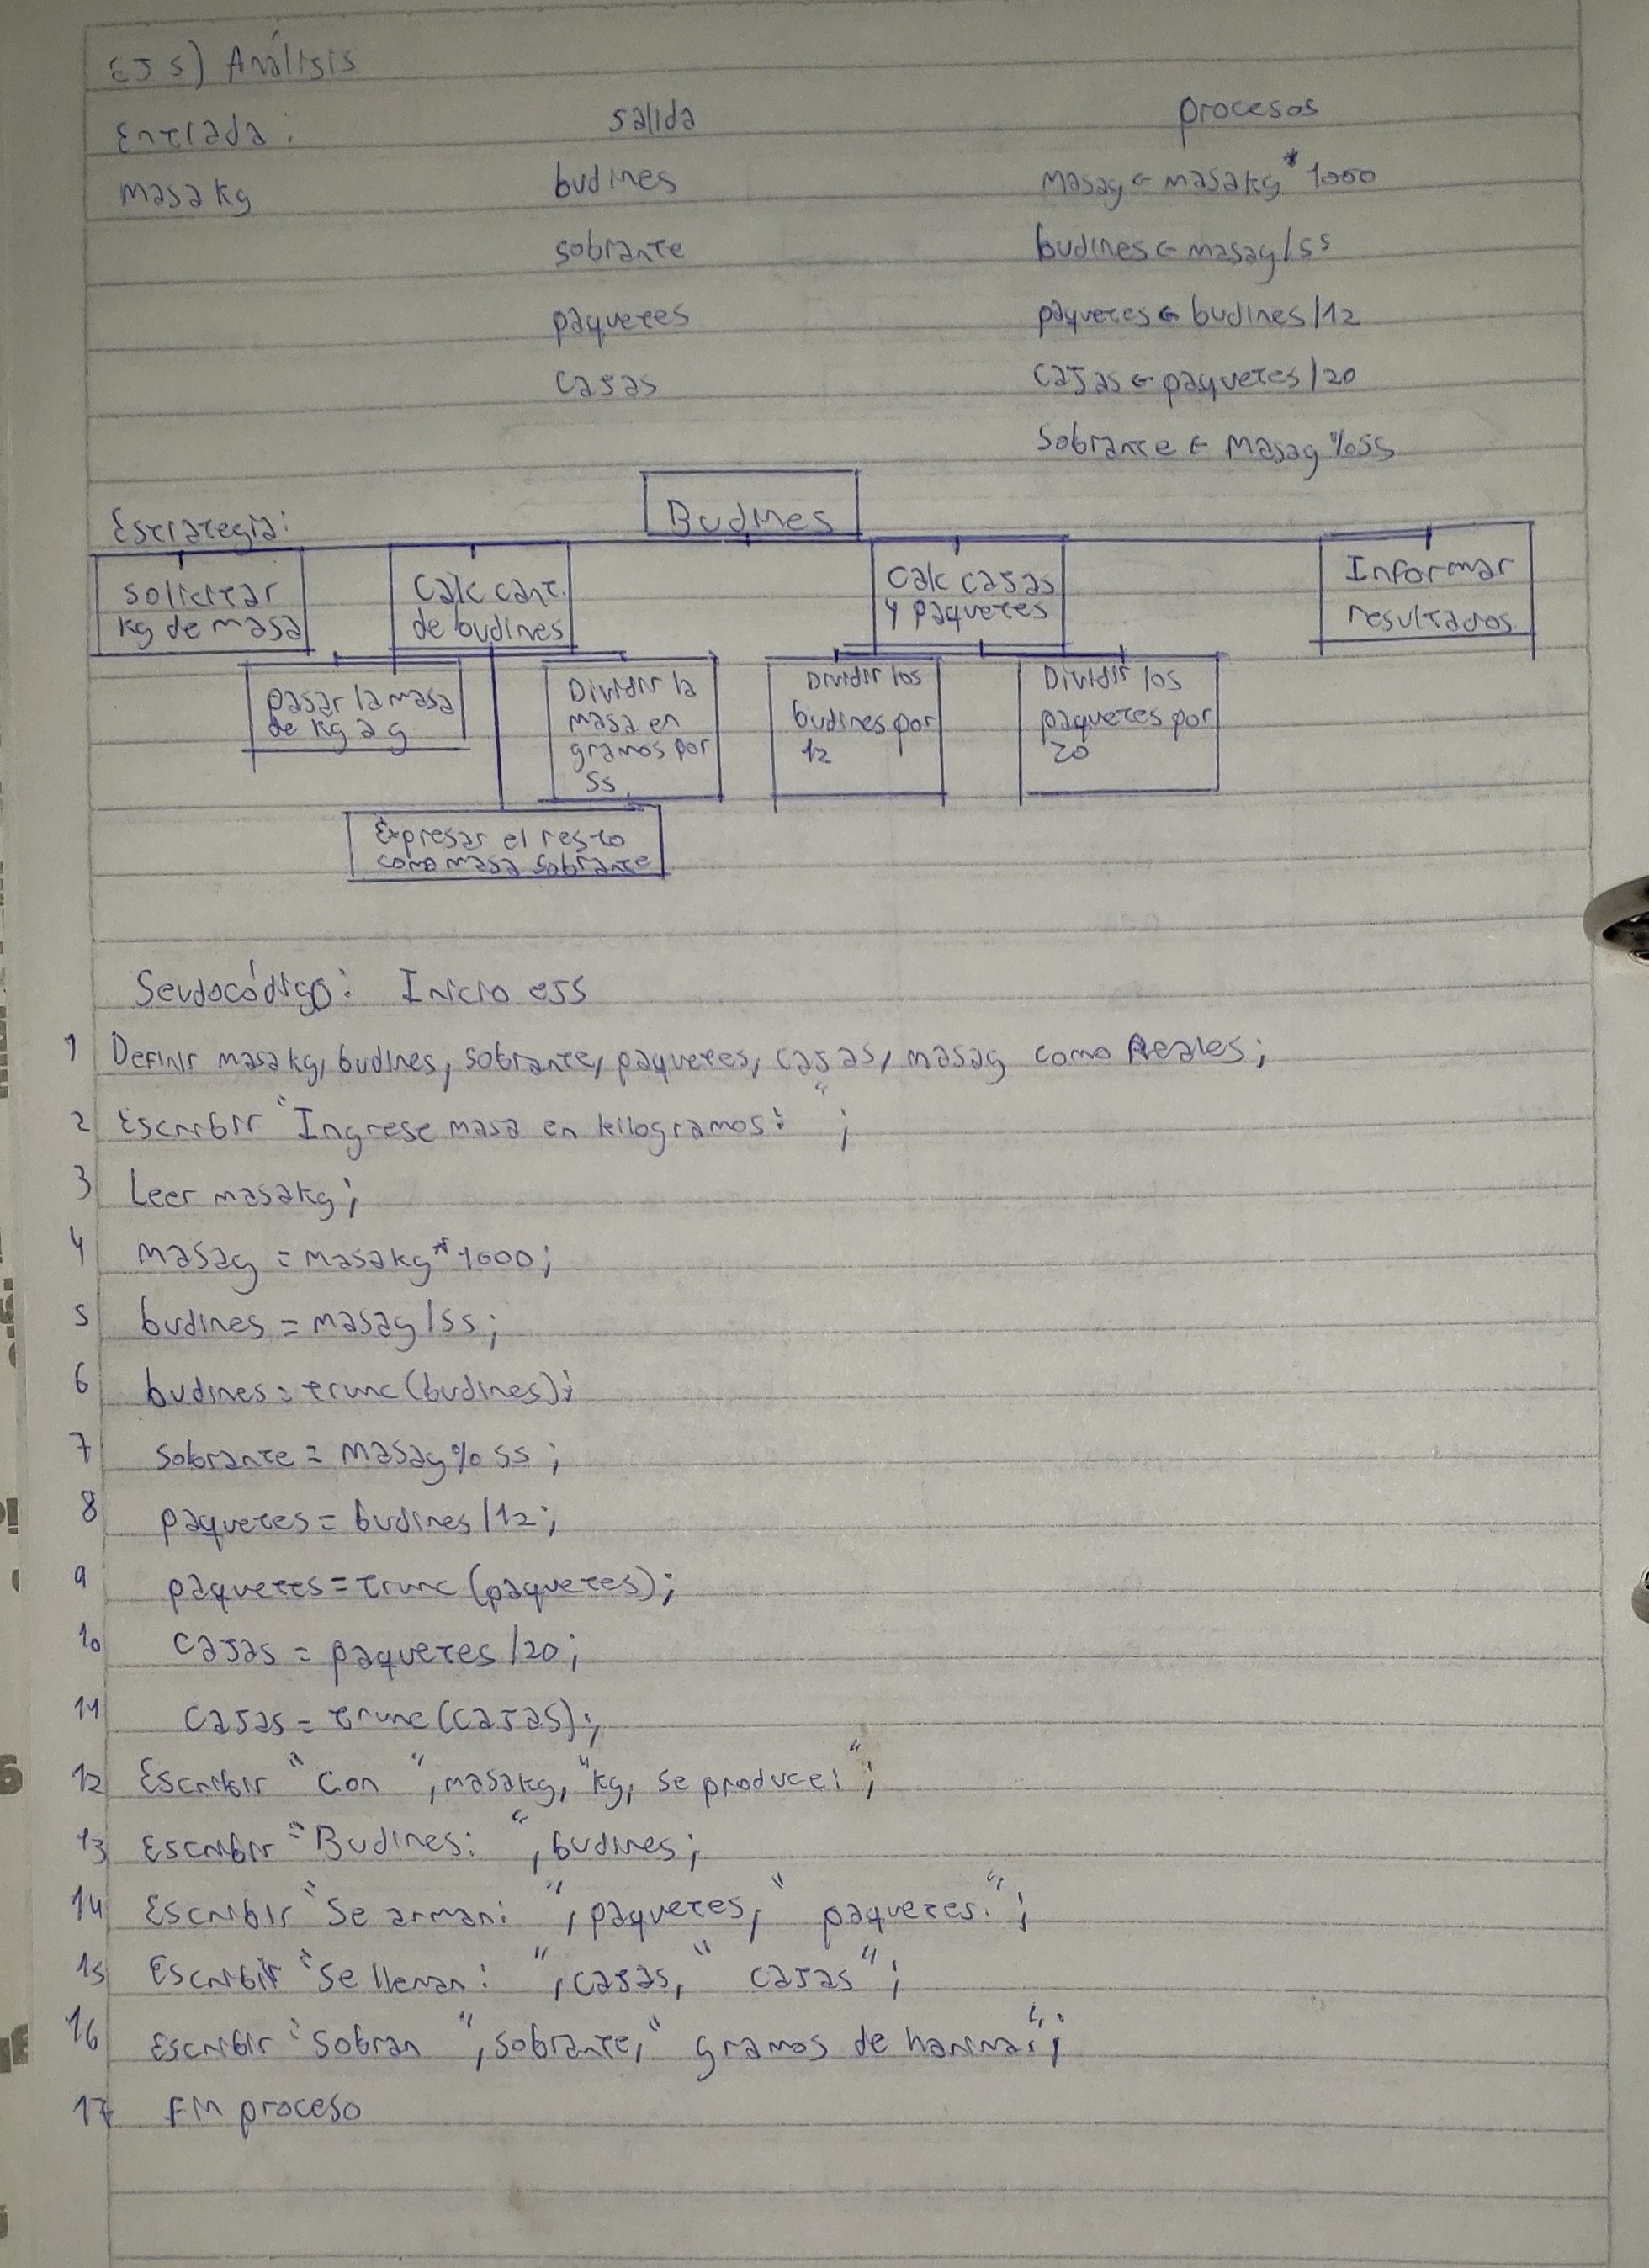 EJ 5) Análisis
Entrada: salida procesos
masakg budines masag ← masakg * 1000
sobrante budines ← masag/55
paquetes paquetes ← budines/12
cajas cajas ← paquetes/20
Sobrante ← Masag %55
Estrategia:
Budines
solicitar
kg de masa
Calc cant.
de budines
Calc cajas
y paquetes
Informar
resultados
pasar la masa
de kg a g
Dividir la
masa en
gramos por
55.
Dividir los
budines por
12
Dividir los
paquetes por
20
Expresar el resto
como masa sobrante
Seudocódigo: Inicio ej5
1 Definir masakg, budines, sobrante, paquetes, cajas, masag como Reales;
2 Escribir "Ingrese masa en kilogramos: ";
3 Leer masakg;
4 masag = masakg*1000;
5 budines = masag/55;
6 budines = trunc(budines);
7 sobrante = masag%55;
8 paquetes = budines/12;
9 paquetes = trunc(paquetes);
10 cajas = paquetes/20;
11 cajas = trunc(cajas);
12 Escribir "Con ", masakg, "kg, se produce: ";
13 Escribir "Budines: ", budines;
14 Escribir "Se arman: ", paquetes, " paquetes.";
15 Escribir "Se llenan: ", cajas, " cajas";
16 Escribir "Sobran ", sobrante, " gramos de harina.";
17 Fin proceso